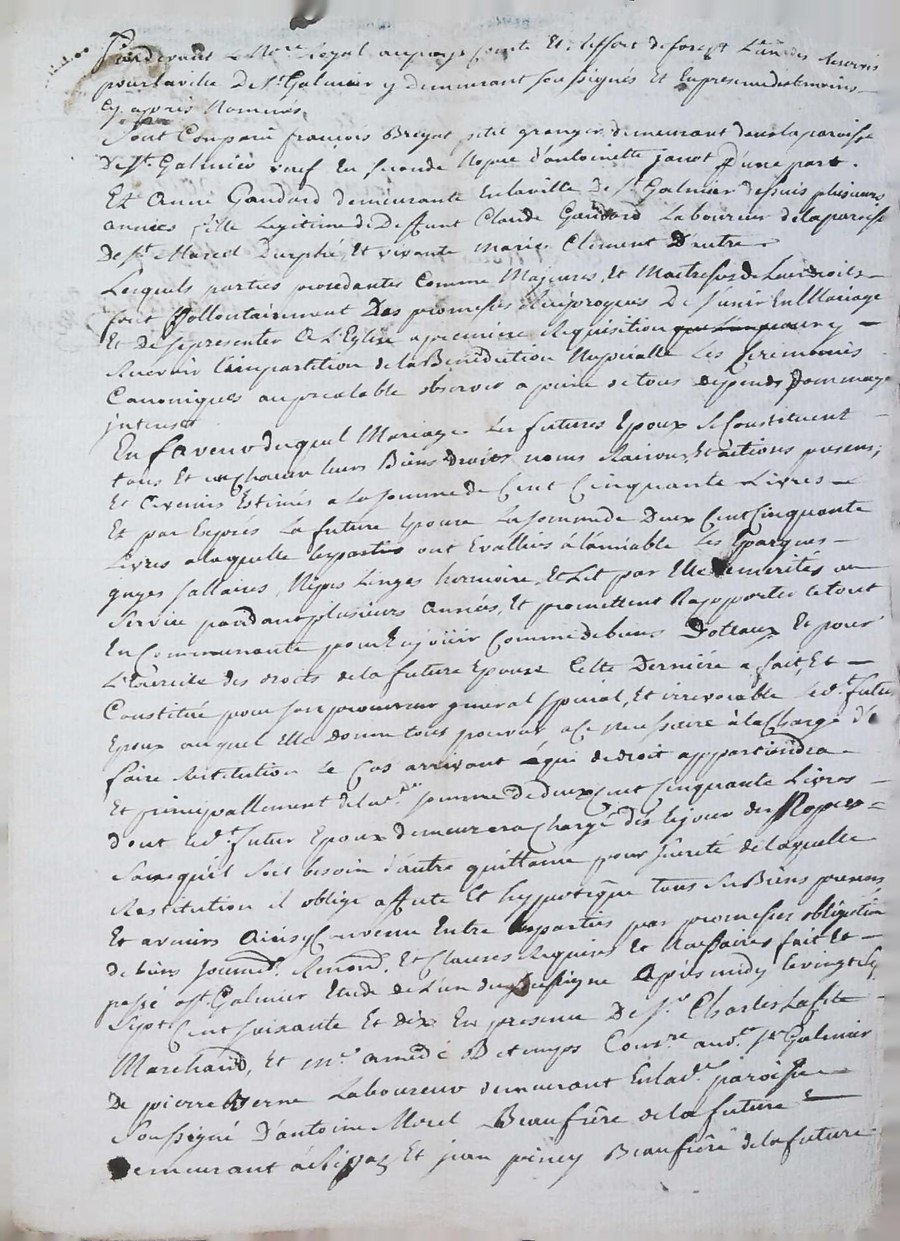 Pardevant le No.re Royal au pays comté Et Ressort de forest L'un des Reservés
pour la ville De St. Galmier y demeurant soussignés Et En presence des temoins
Cy après Nommés,
Sont Comparu françois Breyat petit granger demeurant dans la paroisse
De St. Galmier veuf En seconde Nopce d'antoinette janot d'une part.
Et Anne Gaudard demeurante En la ville De St. Galmier depuis plusieurs
années fille Legitime de Deffunt Claude Gaudard Laboureur de la paroisse
De St. Marcel Durphé, Et vivante Marie Clement D'autre
Lesquels parties procedantes Comme Majeures, Et Maitresses de Leur droits
font Vollontairement Des promesses Reciproques De s'unir En Mariage
Et De se presenter a L'Eglise a premiere Requisition
Recevoir L'impartition de la Benediction Nupcialle Les Ceremonies
Canoniques au prealable observer a peine de tous depends Dommage
interest
En faveur duquel Mariage Les futures Epoux se Constituent
tous Et un Chacun leurs Biens Droits noms Raisons, Et actions presens,
Et avenirs Estimés a la somme de Cent Cinquante Livres
Et par Exprès La future Epouse La somme de Deux Cent Cinquante
Livres a laquelle les parties ont Evalliés à l'amiable Les Epargnes
gages sallaires, Nipes Linges Garderobe, Et Lit par Elle merités au
Service pendant plusieurs années, Et promettent Rapporter le tout
En Communauté pour En jouir Comme de biens Doteaux Et pour
L'Exercice des droits de la future Epouse Cette Derniere a fait, Et
Constitué pour son procureur general special, Et irrevocable led.t futur
Epoux auquel Elle donne tous pouvoir a Ce necessaire à la Charge d'en
faire Restitution Le Cas arrivant à qui de droit appartiendra
Et principallement de lad.te somme De deux Cent Cinquante Livres
dont led.t futur Epoux demeurera Chargé dès le jour des Nopces
sans qu'il soit besoin d'autre quittance pour sureté de laquelle
Restitution il oblige affecte Et hyppoteque tous ses Biens presens
Et avenirs Ainsy Convenu Entre les parties par promesses obligation
de biens soumis.ⁿ Renonc.ⁿ Et Clauses Requises Et necessaires fait Et
passé a St. Galmier Etude de L'un des Après midy le vingt six
Sept Cent soixante Et dix En presence De Sr. Charles Lafite
Marchand, Et Me. amedé Conm.re aud.t St. Galmier
De pierre Verne Laboureur demeurant En lad.te paroisse
Soussigné D'antoine Morel Beaufrere de la future
Demeurant à Et jean piney Beaufrère de la future